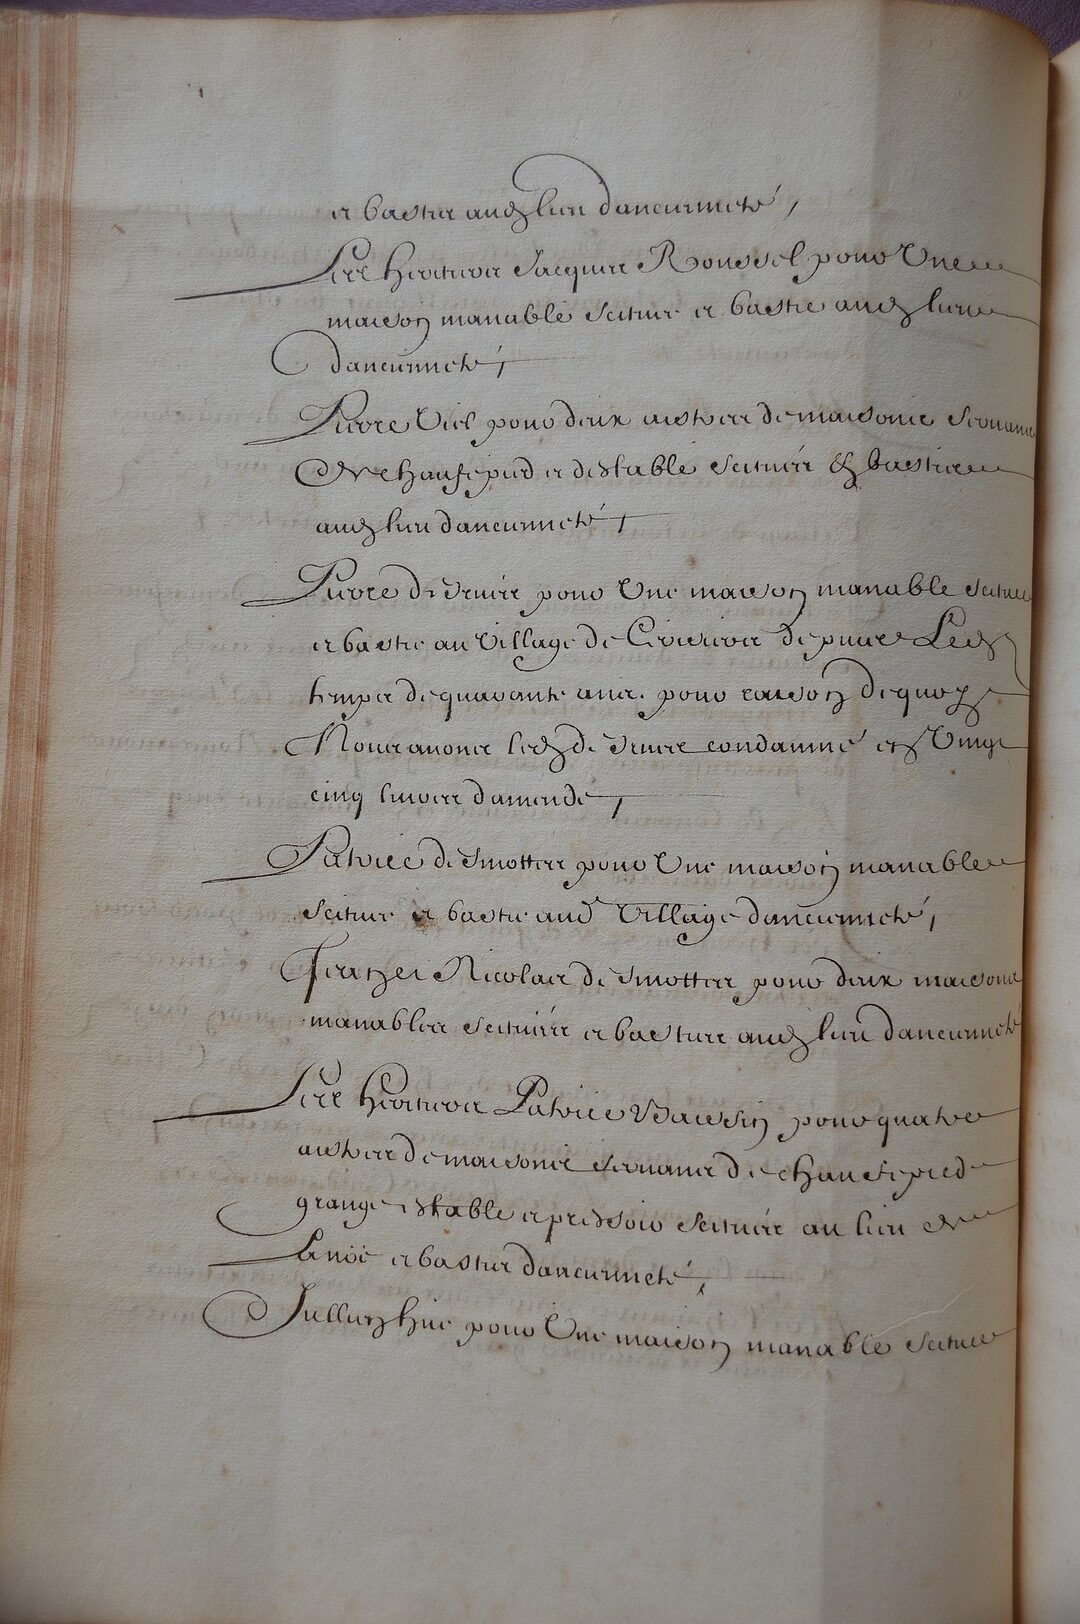 et bastie aud lieu dancienneté,
Les heritiers Jacques Roussel pour Une
maison manable scituée et bastie aud lieu
dancienneté,
Pierre Viel pour deux aistres de maisons servans
de chaufepied et destable scituées et basties
aud lieu dancienneté,
Pierre de pour Une maison manable scituée
et bastie au Village de depuis Led
temps de quarante ans. pour raison de quoy
Nous avons led de condamné en Vingt
cinq livres damende,
Patrice desmottes pour Une maison manable
scituée et bastie aud Village dancienneté,
François Nicolas desmottes pour deux maisons
manables scituées et basties aud lieu dancienneté
Les heritiers Patrice pour quatre
aistres de maisons servans de chaufepied
grange estable et pressoir scituées au lieu de
Lanoë et basties dancienneté,
Jullien hue pour Une maison manable scituée